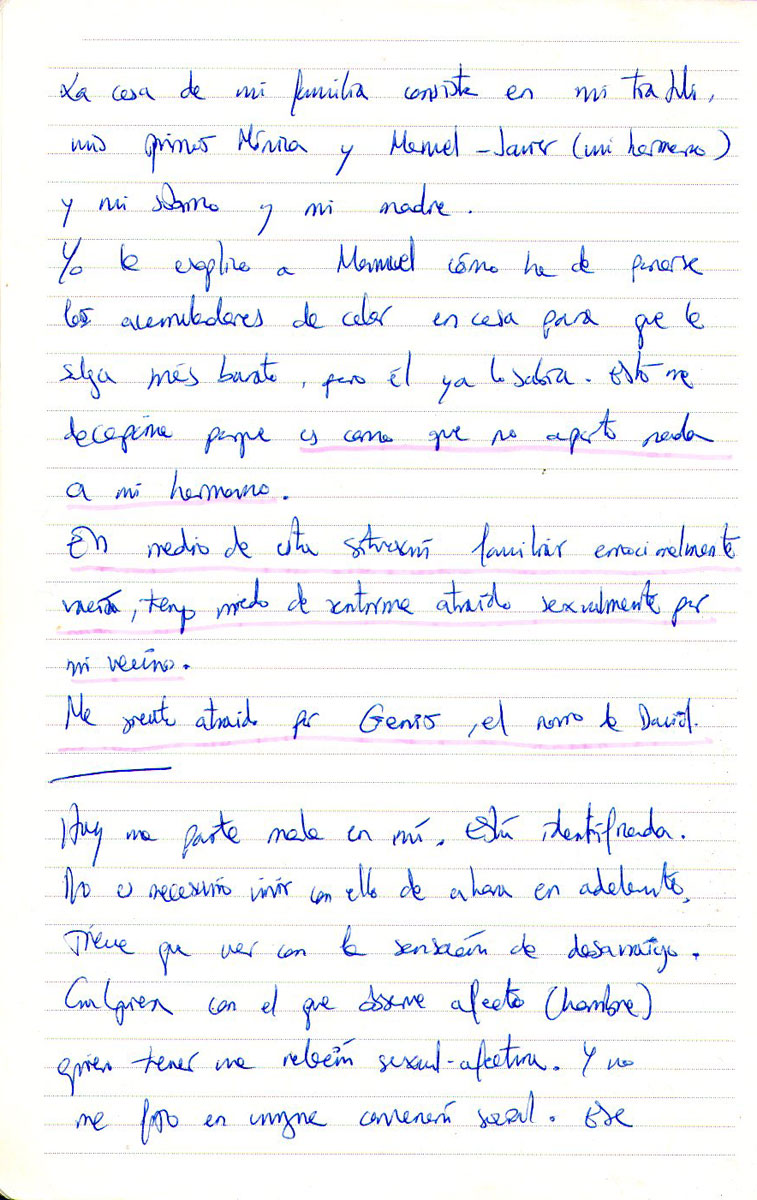 La casa de mi familia consiste en mi tía
mis primos Mónica y Manuel - Javier (mi hermano)
y mi sobrino y mi madre.
Yo le explico a Manuel cómo ha de ponerse
los acumuladores de calor en casa para que le
salga más barato, pero él ya lo sabía. Esto me
decepciona porque es como que no aporto nada
a mi hermano.
En medio de esta situación familiar emocionalmente
vacía, tengo miedo de sentirme atraído sexualmente por
mi vecino.
Me siento atraído por Genís, el novio de David.
Hay una parte mala en mí. Está identificada.
No es necesario vivir con ello de ahora en adelante.
Tiene que ver con la sensación de desarraigo.
Cualquiera con el que observe afecto (hombre)
quiero tener una relación sexual-afectiva. Y no
me fijo en ninguna convención social. Ese